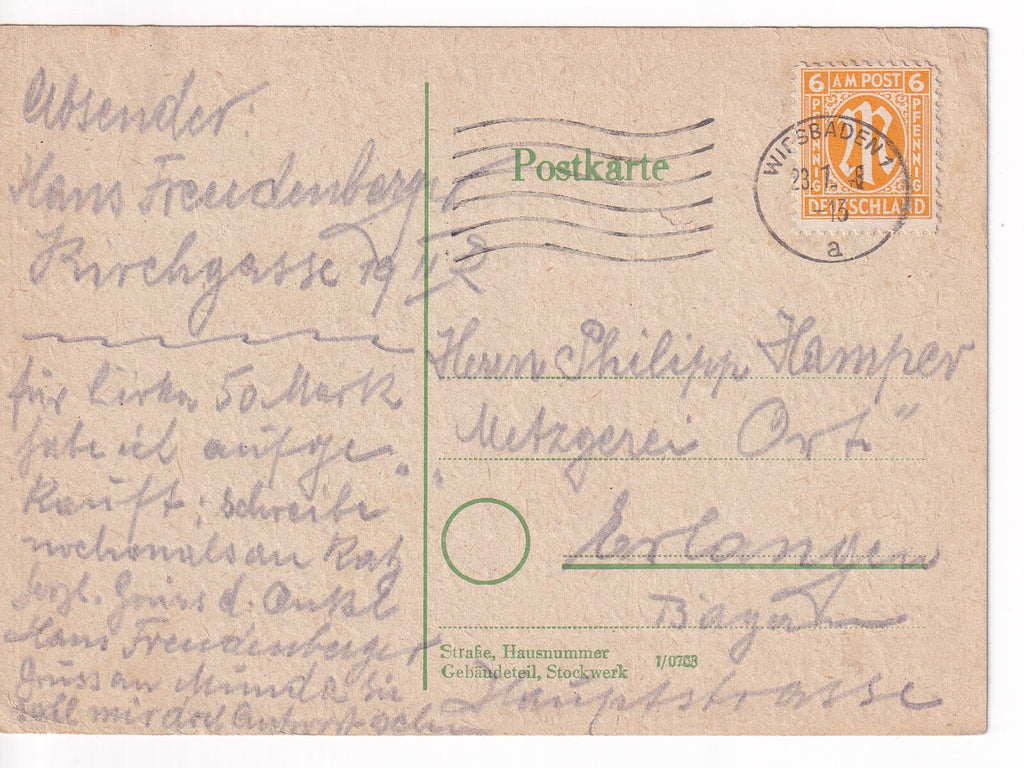 Absender:
Hans Freudenberger
Kirchgasse 19 II
für Cirka 50 Mark
habe ich aufge-
kauft; schreibe
nochmals an Katz
herzl. Gruss d. Onkel
Hans Freudenberger
Gruss an Munda Sie
soll mir doch Antwort geben
Postkarte
6 AM POST 6
PFENNIG PFENNIG
DEUTSCHLAND
WIESBADEN 1
23.7. -13
a
Herrn Philipp Hamper
Metzgerei Ort"
Erlangen
Bayern
Straße, Hausnummer
Gebäudeteil, Stockwerk
Hauptstrasse